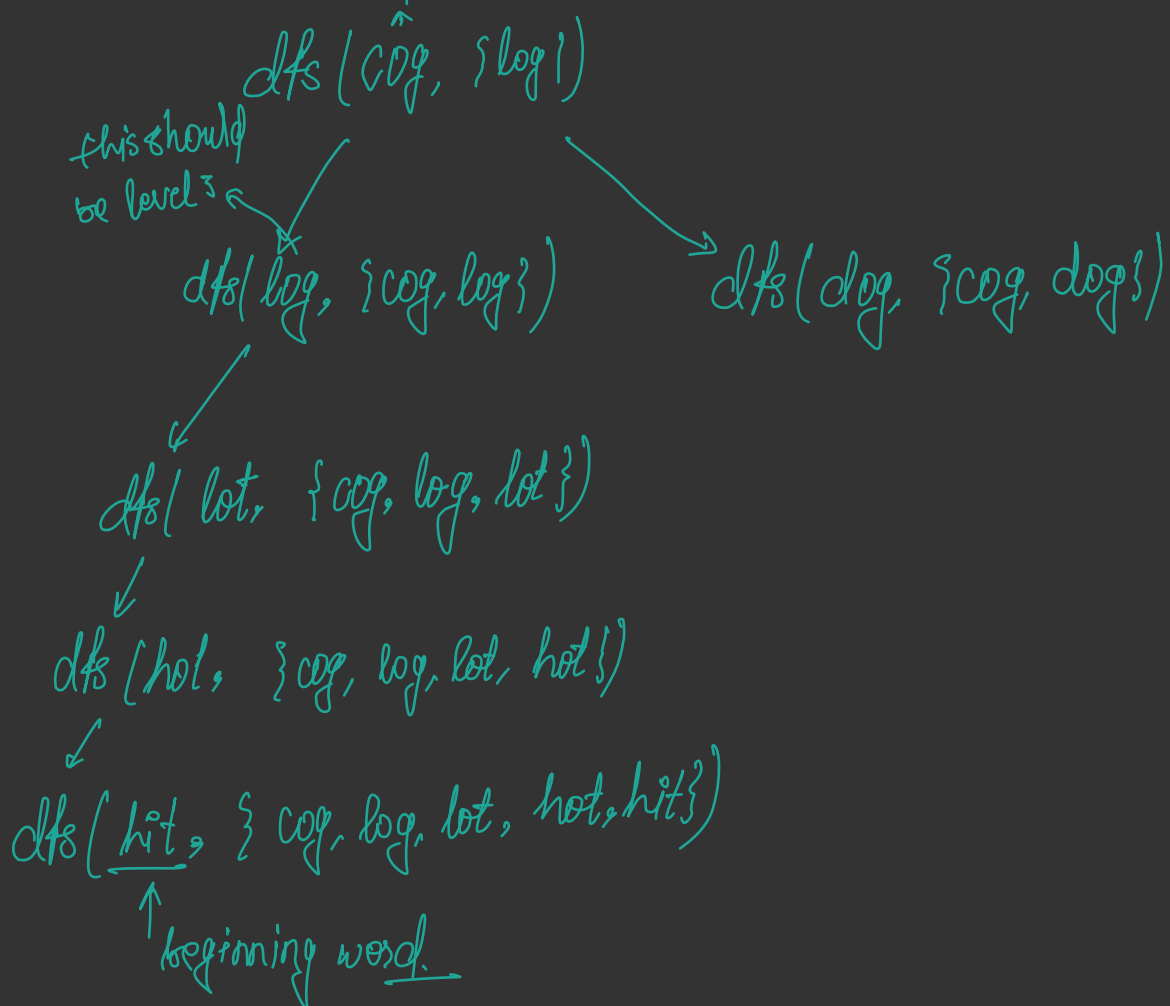 dfs (cog, {log})
this should
be level 3
dfs(log, {cog, log})
dfs(dog, {cog, dog})
dfs( lot, {cog, log, lot})
dfs (hot, {cog, log, lot, hot})
dfs(hit, { cog, log, lot, hot, hit})
beginning word.